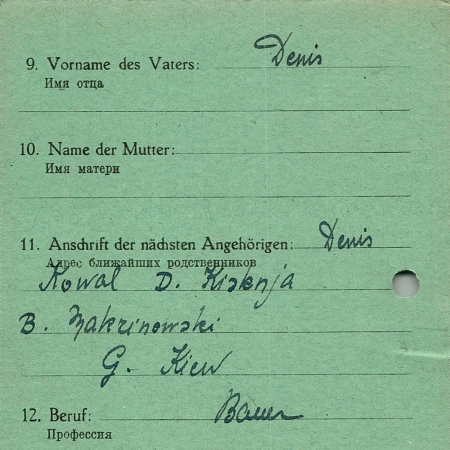 9. Vorname des Vaters: Denis
Имя отца
10. Name der Mutter:
Имя матери
11. Anschrift der nächsten Angehörigen: Denis
Адрес ближайших родственников
Kowal D. Kislnja
B. Zakrinowski
G. Kiew
12. Beruf: Bauer
Профессия